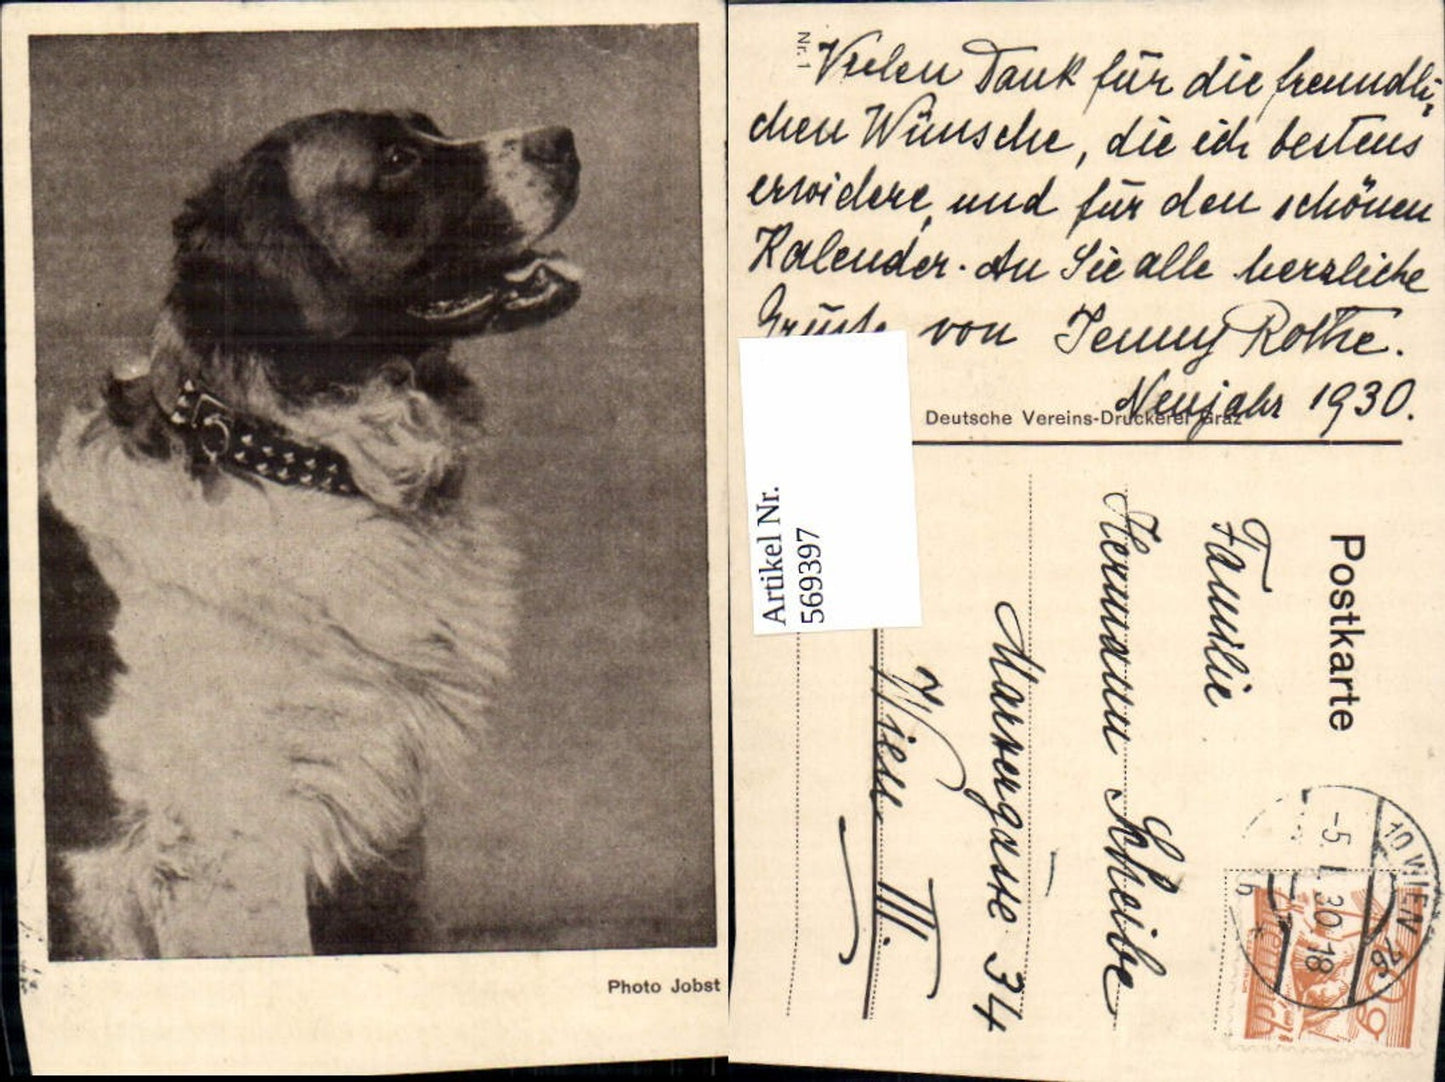 Photo Jobst
Nr. 1
Vielen Dank für die freundli-
chen Wünsche, die ich bestens
erwidere, und für den schönen
Kalender. An Sie alle herzliche
Grüße von Jenny Rothe.
Neujahr 1930.
Deutsche Vereins-Druckerei Graz
Artikel Nr.
569397
Postkarte
Familie
Hermann Scheibe
Marxergasse 34
Wien III.
10 WIEN 76
-5.I.30.18